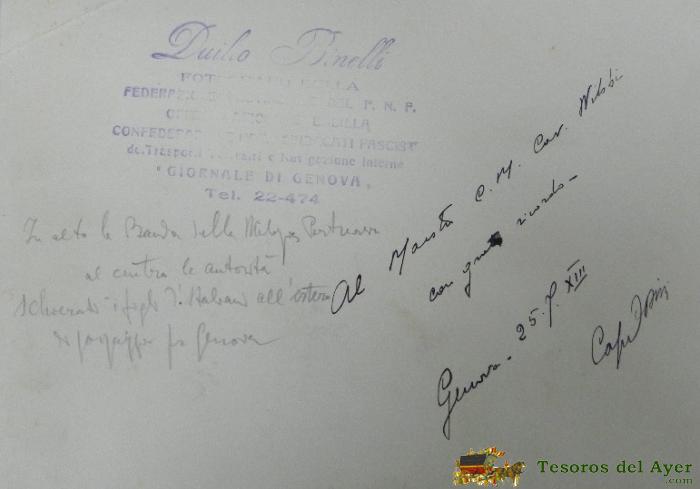 Duilio Binelli
FOTOGRAFO DELLA
FEDERAZIONE DEL P. N. F.
OPERA BALILLA
CONFEDERAZIONE SINDACATI FASCISTI
de. Trasporti e Navigazione Interna
"GIORNALE DI GENOVA"
Tel. 22-474
In alto la Banda della Milizia Portuaria
al centro le autorità
schierati i figli d'Italiani all'estero
di passaggio per Genova
Al Maestro C. M. Cav.
con grato ricordo -
Genova - 25. 7. XIII
Tesoros del Ayer
.com